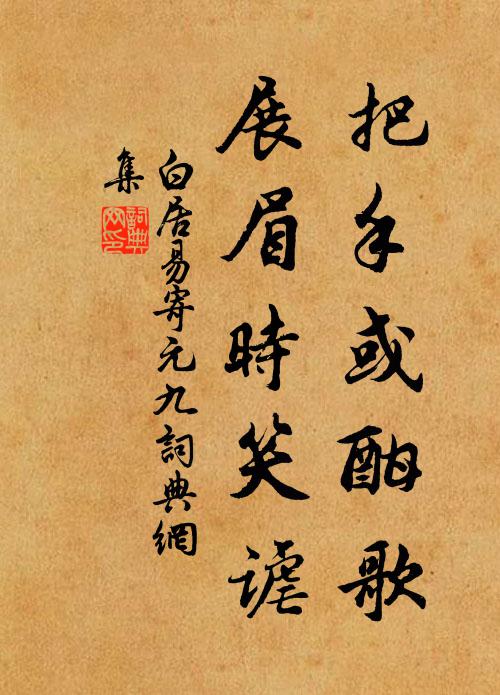 把手或酣歌
展眉時笑謔
白居易寄元九詞典網
集
詞典
网印